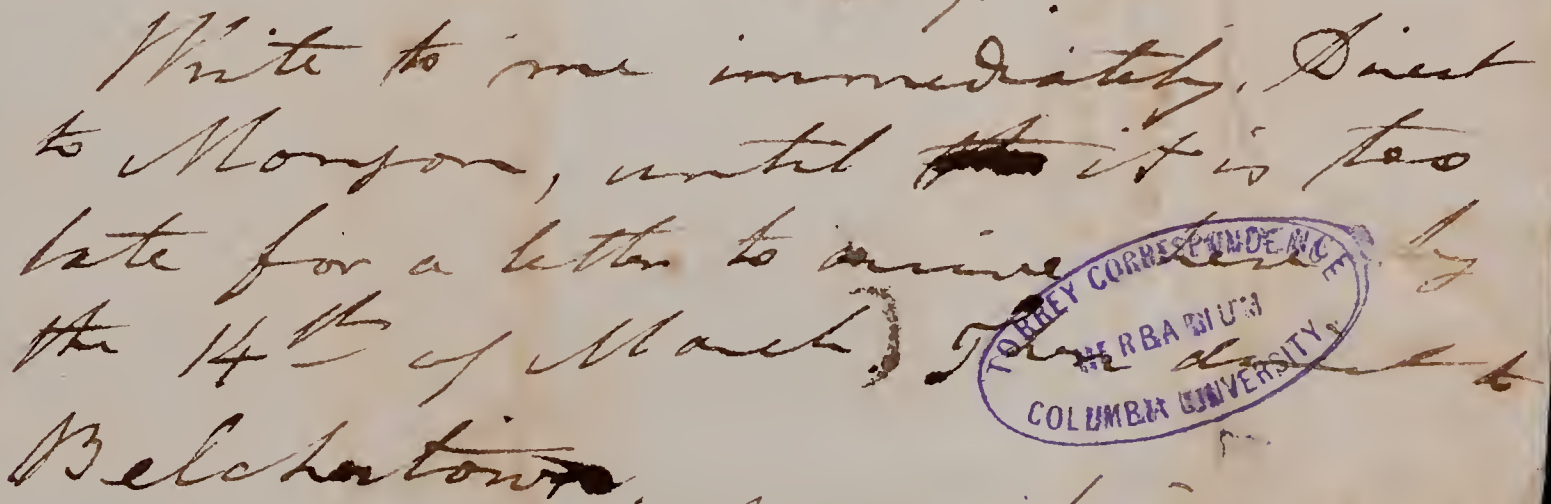 Write to me immediately. Direct
to Monson, until it is too
late for a letter to arrive there by
the 14th of March) Then direct to
Belchertown.
TORREY CORRESPONDENCE
HERBARIUM
COLUMBIA UNIVERSITY